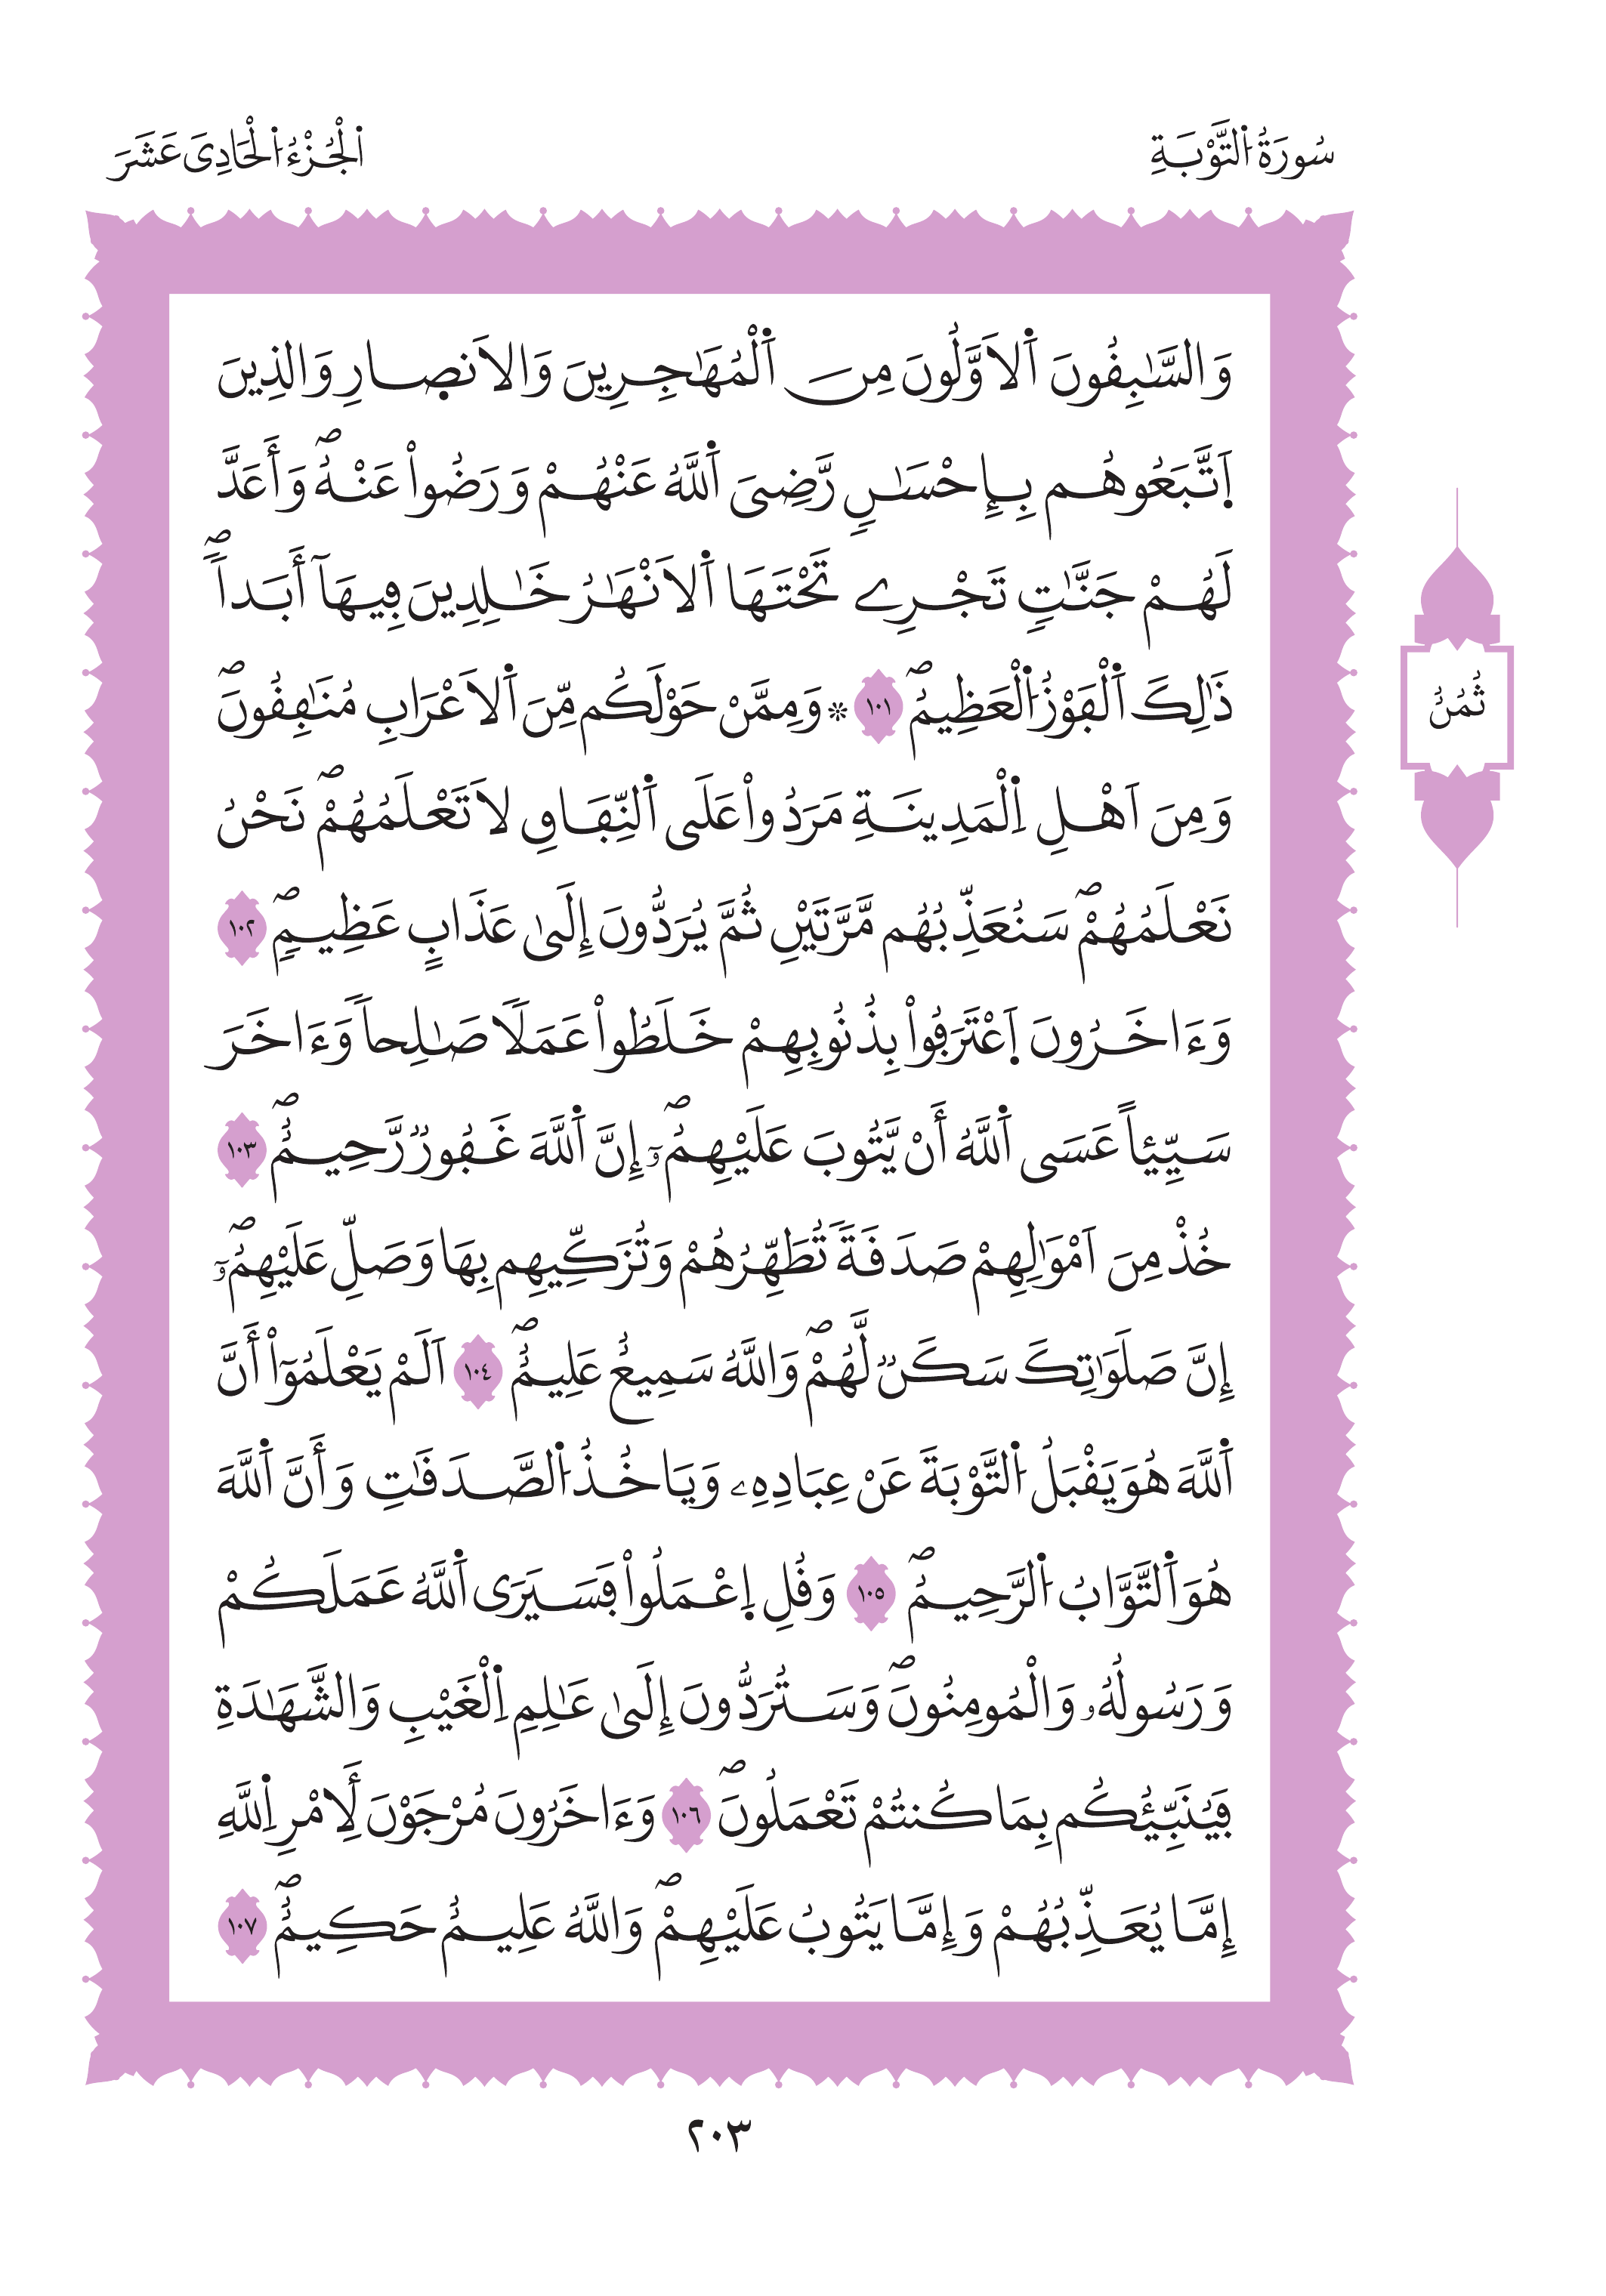 سُورَةُ اُ۬لتَّوْبَةِ
اَ۬لْجُزْءُ اُ۬لْحَادِيَ عَشَرَ
وَالسَّٰبِقُونَ اَ۬لَاوَّلُونَ مِنَ اَ۬لْمُهَٰجِرِينَ وَالَانص۪ارِ وَالذِينَ
اَ۪تَّبَعُوهُم بِإِحْسَٰنٖ رَّضِيَ اَ۬للَّهُ عَنْهُمْ وَرَضُواْ عَنْهُۖ وَأَعَدَّ
لَهُمْ جَنَّٰتٖ تَجْرِے تَحْتَهَا اَ۬لَانْهَٰرُ خَٰلِدِينَ فِيهَآ أَبَداٗۖ
ذَٰلِكَ اَ۬لْفَوْزُ اُ۬لْعَظِيمُۖ ١٠١ ۞ وَمِمَّنْ حَوْلَكُم مِّنَ اَ۬لَاعْرَابِ مُنَٰفِقُونَۖ
وَمِنَ اَهْلِ اِ۬لْمَدِينَةِ مَرَدُواْ عَلَى اَ۬لنِّفَاقِ لَا تَعْلَمُهُمْۖ نَحْنُ
نَعْلَمُهُمْۖ سَنُعَذِّبُهُم مَّرَّتَيْنِ ثُمَّ يُرَدُّونَ إِلَىٰ عَذَابٍ عَظِيمٖۖ ١٠٢
وَءَاخَرُونَ اَ۪عْتَرَفُواْ بِذُنُوبِهِمْ خَلَطُواْ عَمَلاٗ صَٰلِحاٗ وَءَاخَرَ
سَيِّئاً عَسَى اَ۬للَّهُ أَنْ يَّتُوبَ عَلَيْهِمُۥٓۖ إِنَّ اَ۬للَّهَ غَفُورٞ رَّحِيمٌۖ ١٠٣
خُذْ مِنَ اَمْوَٰلِهِمْ صَدَقَةٗ تُطَهِّرُهُمْ وَتُزَكِّيهِم بِهَا وَصَلِّ عَلَيْهِمُۥٓۖ
إِنَّ صَلَوَٰتِكَ سَكَنٞ لَّهُمْۖ وَاللَّهُ سَمِيعٌ عَلِيمٌۖ ١٠٤ اَلَمْ يَعْلَمُوٓاْ أَنَّ
اَ۬للَّهَ هُوَ يَقْبَلُ اُ۬لتَّوْبَةَ عَنْ عِبَادِهِۦ وَيَاخُذُ اُ۬لصَّدَقَٰتِ وَأَنَّ اَ۬للَّهَ
هُوَ اَ۬لتَّوَّابُ اُ۬لرَّحِيمُۖ ١٠٥ وَقُلِ اِ۪عْمَلُواْ فَسَيَرَى اَ۬للَّهُ عَمَلَكُمْ
وَرَسُولُهُۥ وَالْمُومِنُونَۖ وَسَتُرَدُّونَ إِلَىٰ عَٰلِمِ اِ۬لْغَيْبِ وَالشَّهَٰدَةِ
فَيُنَبِّئُكُم بِمَا كُنتُمْ تَعْمَلُونَۖ ١٠٦ وَءَاخَرُونَ مُرْجَوْنَ لَأِمْرِ اِ۬للَّهِ
إِمَّا يُعَذِّبُهُمْ وَإِمَّا يَتُوبُ عَلَيْهِمْۖ وَاللَّهُ عَلِيمٌ حَكِيمٌۖ ١٠٧
ثُمُنُ
٢٠٣